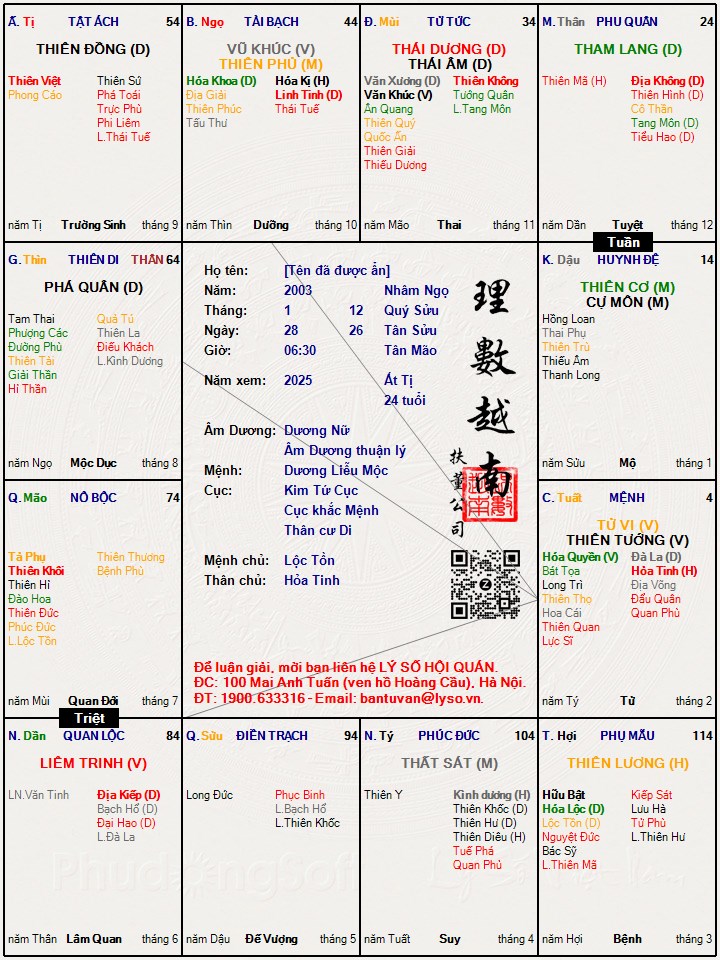 Ã. Tị TẬT ÁCH 54
THIÊN ĐỒNG (D)
Thiên Việt
Phong Cáo
Thiên Sứ
Phá Toái
Trực Phù
Phi Liêm
L.Thái Tuế
năm Tị Trường Sinh tháng 9
B. Ngọ TÀI BẠCH 44
VŨ KHÚC (V)
THIÊN PHỦ (M)
Hóa Khoa (D)
Địa Giải
Thiên Phúc
Tấu Thư
Hóa Kị (H)
Linh Tinh (D)
Thái Tuế
năm Thìn Dưỡng tháng 10
Đ. Mùi TỬ TỨC 34
THÁI DƯƠNG (D)
THÁI ÂM (D)
Văn Xương (D)
Văn Khúc (V)
Ân Quang
Thiên Quý
Quốc Ấn
Thiên Giải
Thiếu Dương
Thiên Không
Tướng Quân
L.Tang Môn
năm Mão Thai tháng 11
M. Thân PHU QUÂN 24
THAM LANG (D)
Thiên Mã (H)
Địa Không (D)
Thiên Hình (D)
Cô Thần
Tang Môn (D)
Tiểu Hao (D)
năm Dần Tuyệt tháng 12
Tuần
G. Thìn THIÊN DI THÂN 64
PHÁ QUÂN (D)
Tam Thai
Phượng Các
Đường Phù
Thiên Tài
Giải Thần
Hỉ Thần
Quả Tú
Thiên La
Điếu Khách
L.Kình Dương
năm Ngọ Mộc Dục tháng 8
Họ tên: [Tên đã được ẩn]
Năm: 2003 Nhâm Ngọ
Tháng: 1 12 Quý Sửu
Ngày: 28 26 Tân Sửu
Giờ: 06:30 Tân Mão
Năm xem: 2025 Ất Tị
24 tuổi
Âm Dương: Dương Nữ
Âm Dương thuận lý
Mệnh: Dương Liễu Mộc
Cục: Kim Tứ Cục
Cục khắc Mệnh
Thân cư Di
Mệnh chủ: Lộc Tồn
Thân chủ: Hỏa Tinh
理
數
越
南
扶
董
公
司
Để luận giải, mời bạn liên hệ LÝ SỐ HỘI QUÁN.
ĐC: 100 Mai Anh Tuấn (ven hồ Hoàng Cầu), Hà Nội.
ĐT: 1900.633316 - Email: bantuvan@lyso.vn.
K. Dậu HUYNH ĐỆ 14
THIÊN CƠ (M)
CỰ MÔN (M)
Hồng Loan
Thai Phụ
Thiên Trù
Thiếu Âm
Thanh Long
năm Sửu Mộ tháng 1
Q. Mão NÔ BỘC 74
Tả Phụ
Thiên Khôi
Thiên Hỉ
Đào Hoa
Thiên Đức
Phúc Đức
L.Lộc Tồn
Thiên Thương
Bệnh Phù
năm Mùi Quan Đới tháng 7
C. Tuất MỆNH 4
TỬ VI (V)
THIÊN TƯỚNG (V)
Hóa Quyền (V)
Bát Tọa
Long Trì
Thiên Thọ
Hoa Cái
Thiên Quan
Lực Sĩ
Đà La (D)
Hỏa Tinh (H)
Địa Võng
Đẩu Quân
Quan Phù
năm Tý Tử tháng 2
Triệt
N. Dần QUAN LỘC 84
LIÊM TRINH (V)
LN.Văn Tinh
Địa Kiếp (D)
Bạch Hổ (D)
Đại Hao (D)
L.Đà La
năm Thân Lâm Quan tháng 6
Q. Sửu ĐIỀN TRẠCH 94
Long Đức
Phục Binh
L.Bạch Hổ
L.Thiên Khốc
năm Dậu Đế Vượng tháng 5
N. Tý PHÚC ĐỨC 104
THẤT SÁT (M)
Thiên Y
Kình dương (H)
Thiên Khốc (D)
Thiên Hư (D)
Thiên Diêu (H)
Tuế Phá
Quan Phủ
năm Tuất Suy tháng 4
T. Hợi PHỤ MẪU 114
THIÊN LƯƠNG (H)
Hữu Bật
Hóa Lộc (D)
Lộc Tồn (D)
Nguyệt Đức
Bác Sỹ
L.Thiên Mã
Kiếp Sát
Lưu Hà
Tử Phù
L.Thiên Hư
năm Hợi Bệnh tháng 3